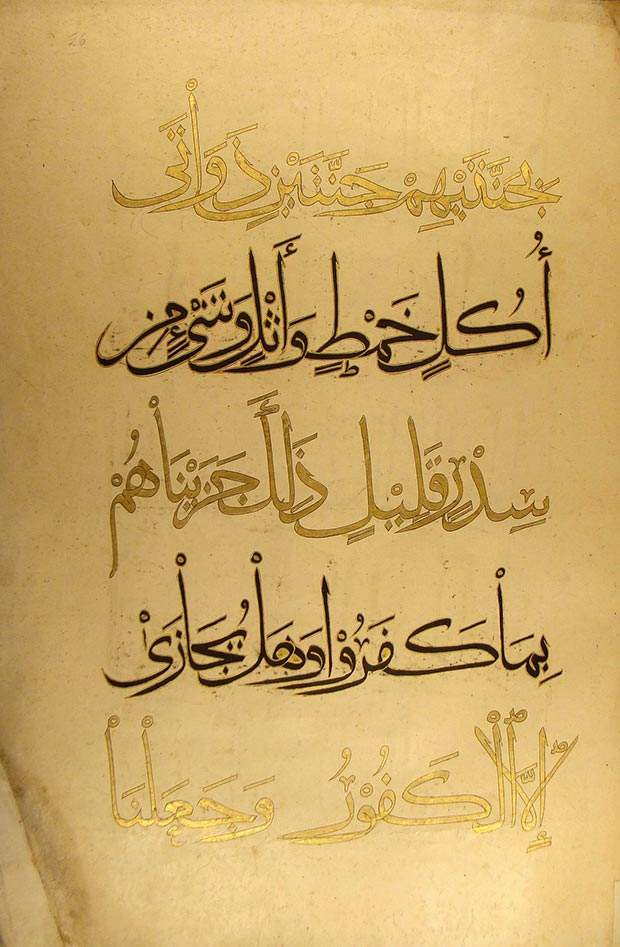 26
بِجَنَّتَيْهِمْ جَنَّتَيْنِ ذَوَاتَىْ
أُكُلٍ خَمْطٍ وَأَثْلٍ وَشَىْءٍ مِنْ
سِدْرٍ قَلِيْلٍ ذَلِكَ جَزَيْنَاهُمْ
بِمَا كَفَرُوْا وَهَلْ يُجَازَىْ
إِلَّا الْكَفُوْرُ وَجَعَلْنَا